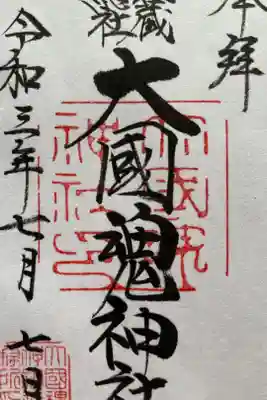 奉拝
蔵社
大國魂神社
令和三年七月七日